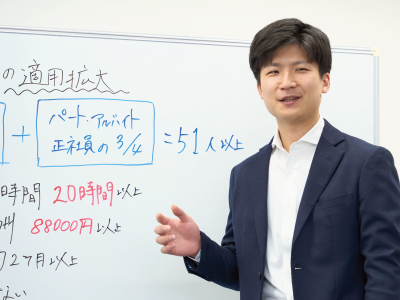 の適用拡大
+ パート・アルバイト
正社員の3/4 =51人以上
時間 20時間以上
88000円以上
2ヶ月以上
ない